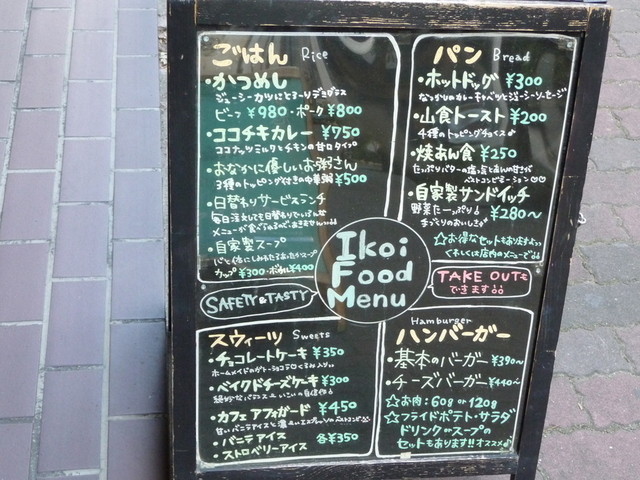 ごはん Rice
・かつめし
ジューシーカツにとろ〜りデミグラス
ビーフ ¥980・ポーク ¥800
・ココチキカレー ¥750
ココナッツミルクとチキンの甘口タイプ
・おなかに優しいお粥さん
3種のトッピング付きの中華粥 ¥500
・日替わりサービスランチ
毎日注文しても日替わりでいろんな
・自家製スープ
カップ ¥300・ボウル ¥400
パン Bread
・ホットドッグ ¥300
なつかしのカレーキャベツとジューシーソーセージ
・山食トースト ¥200
4種のトッピングチョイス♪
・焼あん食 ¥250
たっぷりバターの塩っ気とあんの甘さが
ベストコンビネーション♡♡
・自家製サンドイッチ
野菜たーっぷり♪ ¥280〜
まっとりのおいしさ
☆お得なセットもあります
くわしくは店内のメニューで
Ikoi
Food
Menu
SAFETY & TASTY
TAKE OUTも
できます
スウィーツ Sweets
・チョコレートケーキ ¥350
・ベイクドチーズケーキ ¥300
絶妙なバランス いこいの自信作
・カフェ アフォガード ¥450
・バニラアイス
・ストロベリーアイス 各¥350
Hamburger
ハンバーガー
・基本のバーガー ¥390〜
・チーズバーガー ¥440〜
☆お肉：60g or 120g
☆フライドポテト・サラダ
ドリンクorスープの
セットもあります!!オススメ♪